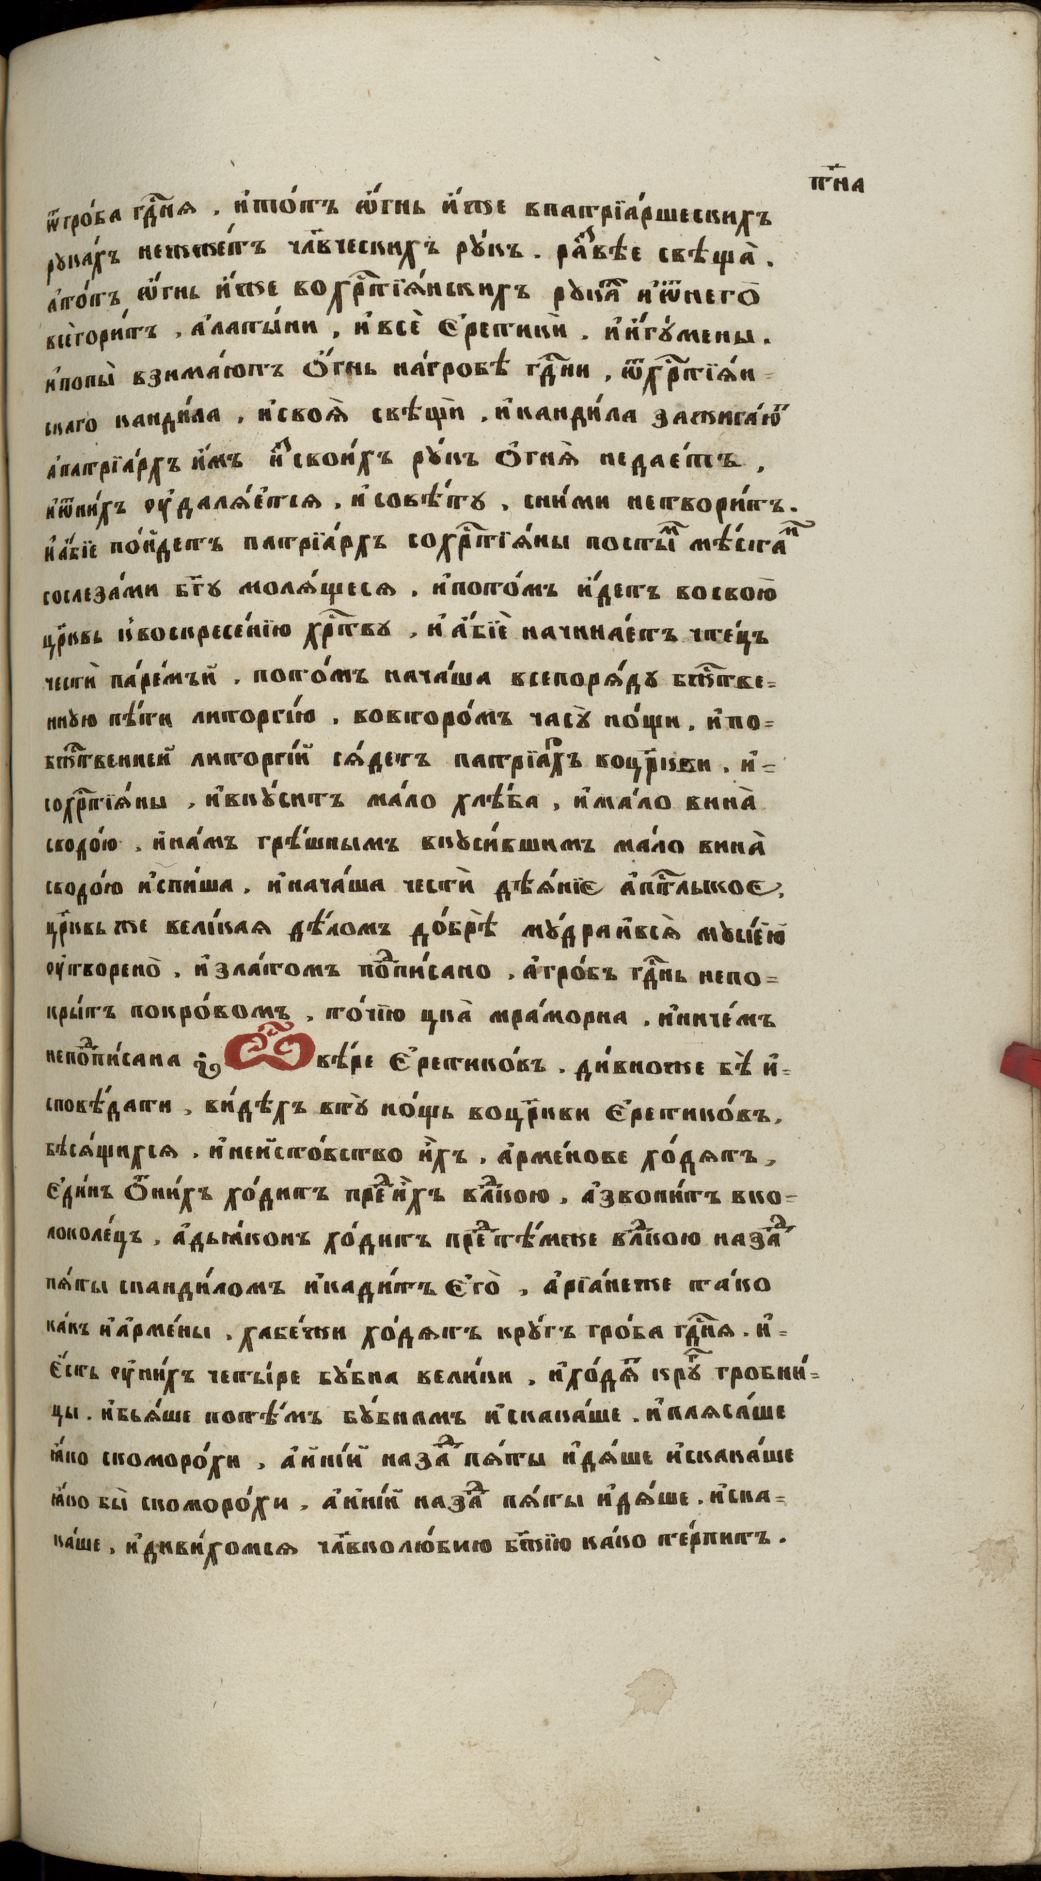 пт҃на
ѿгро́ба гд҇ня . и҆то́тъ ѻ҆́гнь и҆́же впатрїа́ршескихъ
рука́хъ нежже́тъ чл҃вческихъ ру́къ . ра́звѣе свѣща̀ .
а҆то́тъ ѻ҆́гнь и҆́же вохрⷭ҇тїя́нскихъ рука́х и҆ѿнего̀
всегори́тъ , а҆латы́ни , и҆всѐ є҆ретикѝ . и҆и҆гꙋ́мены .
и҆попы̀ взима́ютъ ѻ҆́гнь на́гробѣ гд҇ни , ѿхрⷭ҇тїя́н=
скаго канди́ла , и҆своѧ̀ свѣщѝ . и҆канди́ла зажига́ют
а҆патрїа́рхъ и҆́мъ и҆з̾свои́хъ ру́къ ѻ҆гня̀ недае́тъ ,
и҆ѿни́хъ ѹ҆даля́е҆тся , и҆совѣ́ту , сни́ми нетвори́тъ .
и҆а҆́бїе по́йдетъ патрїа́рхъ сохрⷭ҇тїя́ны посты҃м мѣ́стам
сослеза́ми бг҃у моля́щеся . и҆пото́мъ и҆́детъ восвою̀
цр҃ковь к̾воскресе́нїю хрⷭ҇тву , и҆а҆́бїе начина́етъ чте́цъ
честѝ паре́мъй . пото́мъ нача́ша всепоря́ду бжⷭ҇тве=
нную пѣ́ти литоргі́ю . вовторо́мъ часу̀ но́щи . и҆по=
бжⷭ҇твенней литоргі́й ся́детъ патрїа́рхъ воцр҃кви . и҆=
сохрⷭ҇тїя́ны , и҆вку́ситъ ма́ло хлѣ́ба , и҆ма́ло вина̀
сводо́ю . и҆на́мъ грѣ́шнымъ вкуси́вшимъ ма́ло вина̀
сводо́ю и҆спи́ша . и҆нача́ша честѝ дѣя́нїє а҆пⷭ҇тлькоє ,
цр҃ковь же вели́кая дѣ́ломъ до́брѣ му́драи҆вся̀ мусіе́ю
ѹ҆творено̀ . и҆зла́томъ подпи́сано , а҆гро́бъ гд҇нь непо=
кры́тъ покро́вомъ , то́чїю цка̀ мра́морна , и҆ниче́мъ
неподпи́сана Ѡ вѣ́ре є҆ретико́въ . ди́вноже бѣ̀ и҆=
сповѣ́дати , ви́дѣхъ вту̀ но́щь воцр҃кви є҆ретико́въ ,
бѣся́щихся , и҆неи҆сто́вство и҆́хъ , а҆рме́нове хо́дятъ ,
є҆ди́нъ ѻ҆ни́хъ хо́дитъ пред и҆́хъ влⷣкою , а҆звони́тъ вко=
локоле́цъ , а҆дья́конъ хо́дитъ пред тѣ́мже влⷣкою наза́д
пя́ты скадни́ломъ и҆кади́тъ є҆го̀ , а҆рїа́неже та́ко
ка́къ и҆а҆рме́ны . хабе́жи хо́дятъ кру́гъ гро́ба гд҇ня . и҆=
є҆́сть ѹ҆ни́хъ четы́ре бу́бна вели́ки , и҆хо́дят круг гробни́=
цы . и҆бья́ше потѣ́мъ бу́бнамъ и҆скака́ше . и҆пляса́ше
я҆́ко скоморо́хи , а҆и҆ні́й наза́д пя́ты и҆дя́ше и҆скака́ше
я҆́ко бы̀ скоморо́хи , а҆и҆ні́й наза́д пя́ты и҆дя́ше . и҆ска=
ка́ше , и҆диви́хомся чл҃вколю́бию бж҃їю ка́ко те́рпитъ .